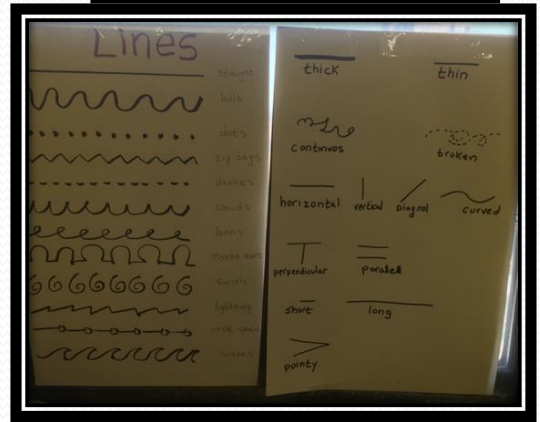 Lines
straight
hills
dots
zig zags
dashes
clouds
loops
mouse ears
swirls
lightning
waves
thick thin
continuos broken
horizontal vertical diagnol curved
perpendicular parallel
short long
pointy